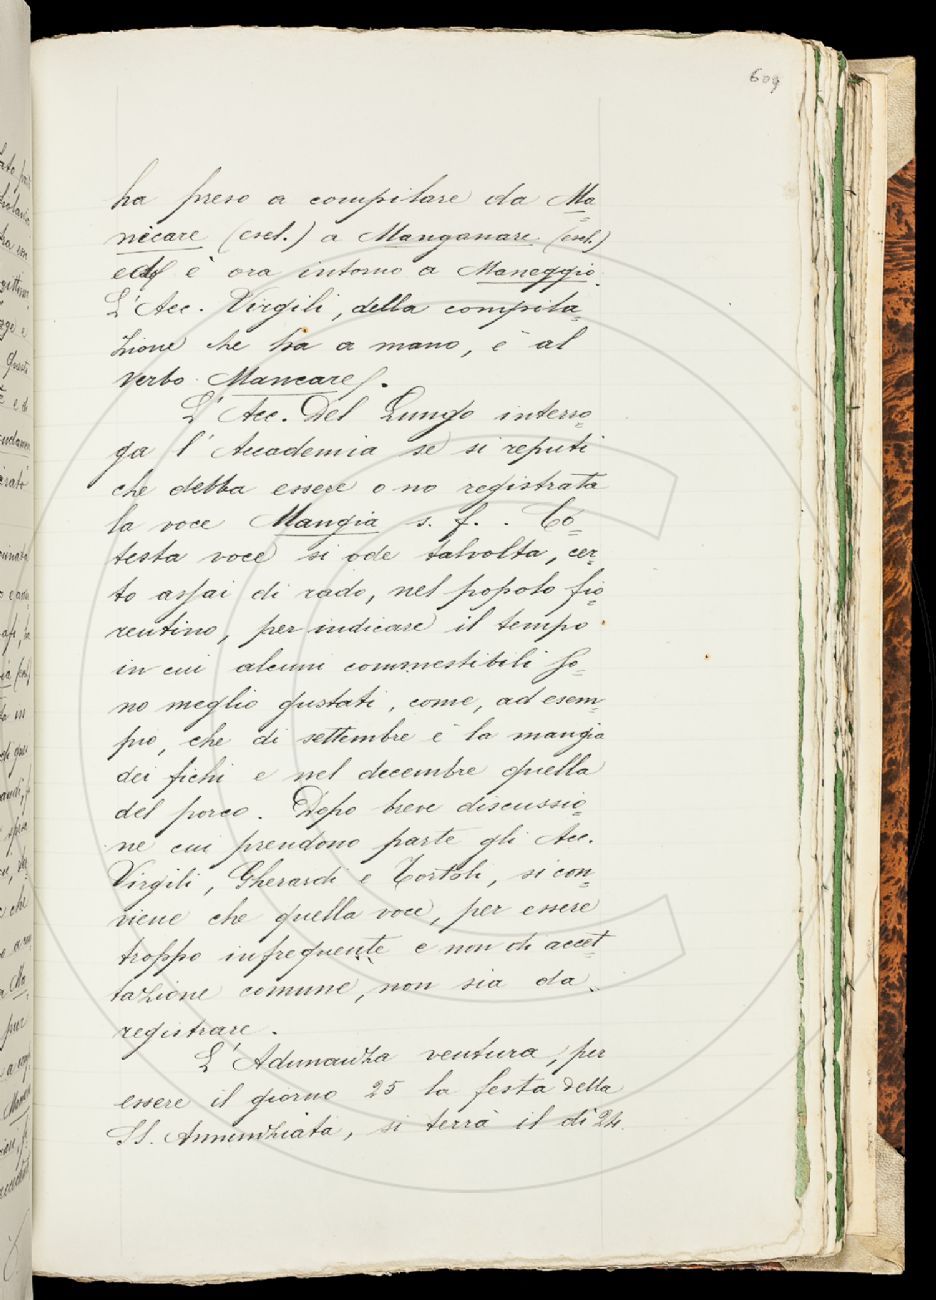 609
ha preso a compilare da Ma
nicare (escl.) a Manganare (escl.)
ed è ora intorno a Maneggio.
L'Acc. Virgili, della compila=
zione che ha a mano, è al
verbo Mancare.
L'Acc. Del Lungo interro=
ga l'Accademia se si reputi
che debba essere o no registrata
la voce Mangia s. f. . Co=
testa voce si ode talvolta, cer=
to assai di rado, nel popolo fio=
rentino, per indicare il tempo
in cui alcuni commestibili so=
no meglio gustati, come, ad esem=
pio, che di settembre è la mangia
dei fichi e nel decembre quella
del porco. Dopo breve discussio=
ne cui prendono parte gli Acc.
Virgili, Gherardi e Tortoli, si con=
viene che quella voce, per essere
troppo infrequente e non di accet=
tazione comune, non sia da
registrare.
L'Adunanza ventura, per
essere il giorno 25 la festa della
SS. Annunziata, si terrà il dì 24.